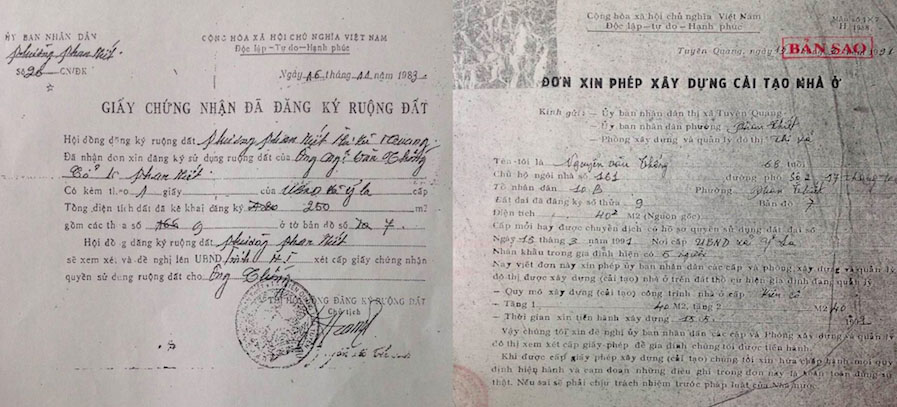 ỦY BAN NHÂN DÂN
Phường Phan Thiết
Số 96 CN/ĐK
CỘNG HÒA XÃ HỘI CHỦ NGHĨA VIỆT NAM
Độc lập - Tự do - Hạnh phúc
Ngày 16 tháng 11 năm 1983
GIẤY CHỨNG NHẬN ĐÃ ĐĂNG KÝ RUỘNG ĐẤT
Hội đồng đăng ký ruộng đất phường Phan Thiết
Đã nhận đơn xin đăng ký sử dụng ruộng đất của Ông
Phan Thiết
Có kèm 1 giấy của UBND xã Ỷ La cấp
Tổng diện tích đất đã kê khai đăng ký 250 m2
gồm các thửa số 9 ở tờ bản đồ số 7
Hội đồng đăng ký ruộng đất phường Phan Thiết
sẽ xem xét và đề nghị lên UBND xét cấp giấy chứng nhận
quyền sử dụng ruộng đất cho Ông Thống
HỘI ĐỒNG ĐĂNG KÝ RUỘNG ĐẤT
Chủ tịch
Cộng hòa xã hội chủ nghĩa Việt Nam
Độc lập - Tự do - Hạnh phúc
Tuyên Quang, ngày
BẢN SAO
ĐƠN XIN PHÉP XÂY DỰNG CẢI TẠO NHÀ Ở
Kính gửi: - Ủy ban nhân dân thị xã Tuyên Quang
- Ủy ban nhân dân phường Phan Thiết
- Phòng xây dựng và quản lý đô thị thị xã
Tên tôi là Nguyễn Văn Thống 68 tuổi
Chủ hộ ngôi nhà số 161 đường phố
Tổ nhân dân 10B Phường Phan Thiết
Đất đai đã đăng ký số thửa 9 Bản đồ 7
Diện tích 40 M2 (Nguồn gốc)
Cấp mới hay được chuyển dịch có hồ sơ quyền sử dụng đất đai số
Ngày 15 tháng 3 năm 1991 Nơi cấp UBND xã Ỷ La
Nhân khẩu trong gia đình hiện có 5 người
Nay viết đơn này xin phép ủy ban nhân dân các cấp và phòng xây dựng và quản lý
đô thị được xây dựng (cải tạo) nhà ở trên đất thổ cư hiện gia đình đang quản lý
- Quy mô xây dựng (cải tạo) công trình nhà ở cấp
- Tầng 1 40 M2, tầng 2 M2 40
- Thời gian xin tiến hành xây dựng 15.5 1991
Vậy chúng tôi xin đề nghị ủy ban nhân dân các cấp và Phòng xây dựng và quản lý
đô thị xem xét cấp giấy phép để gia đình chúng tôi được tiến hành.
Khi được cấp giấy phép xây dựng (cải tạo) chúng tôi xin hứa chấp hành mọi quy
định hiện hành và cam đoan những điều ghi trong đơn này là hoàn toàn đúng sự
thật. Nếu sai sẽ phải chịu trách nhiệm trước pháp luật của Nhà nước.